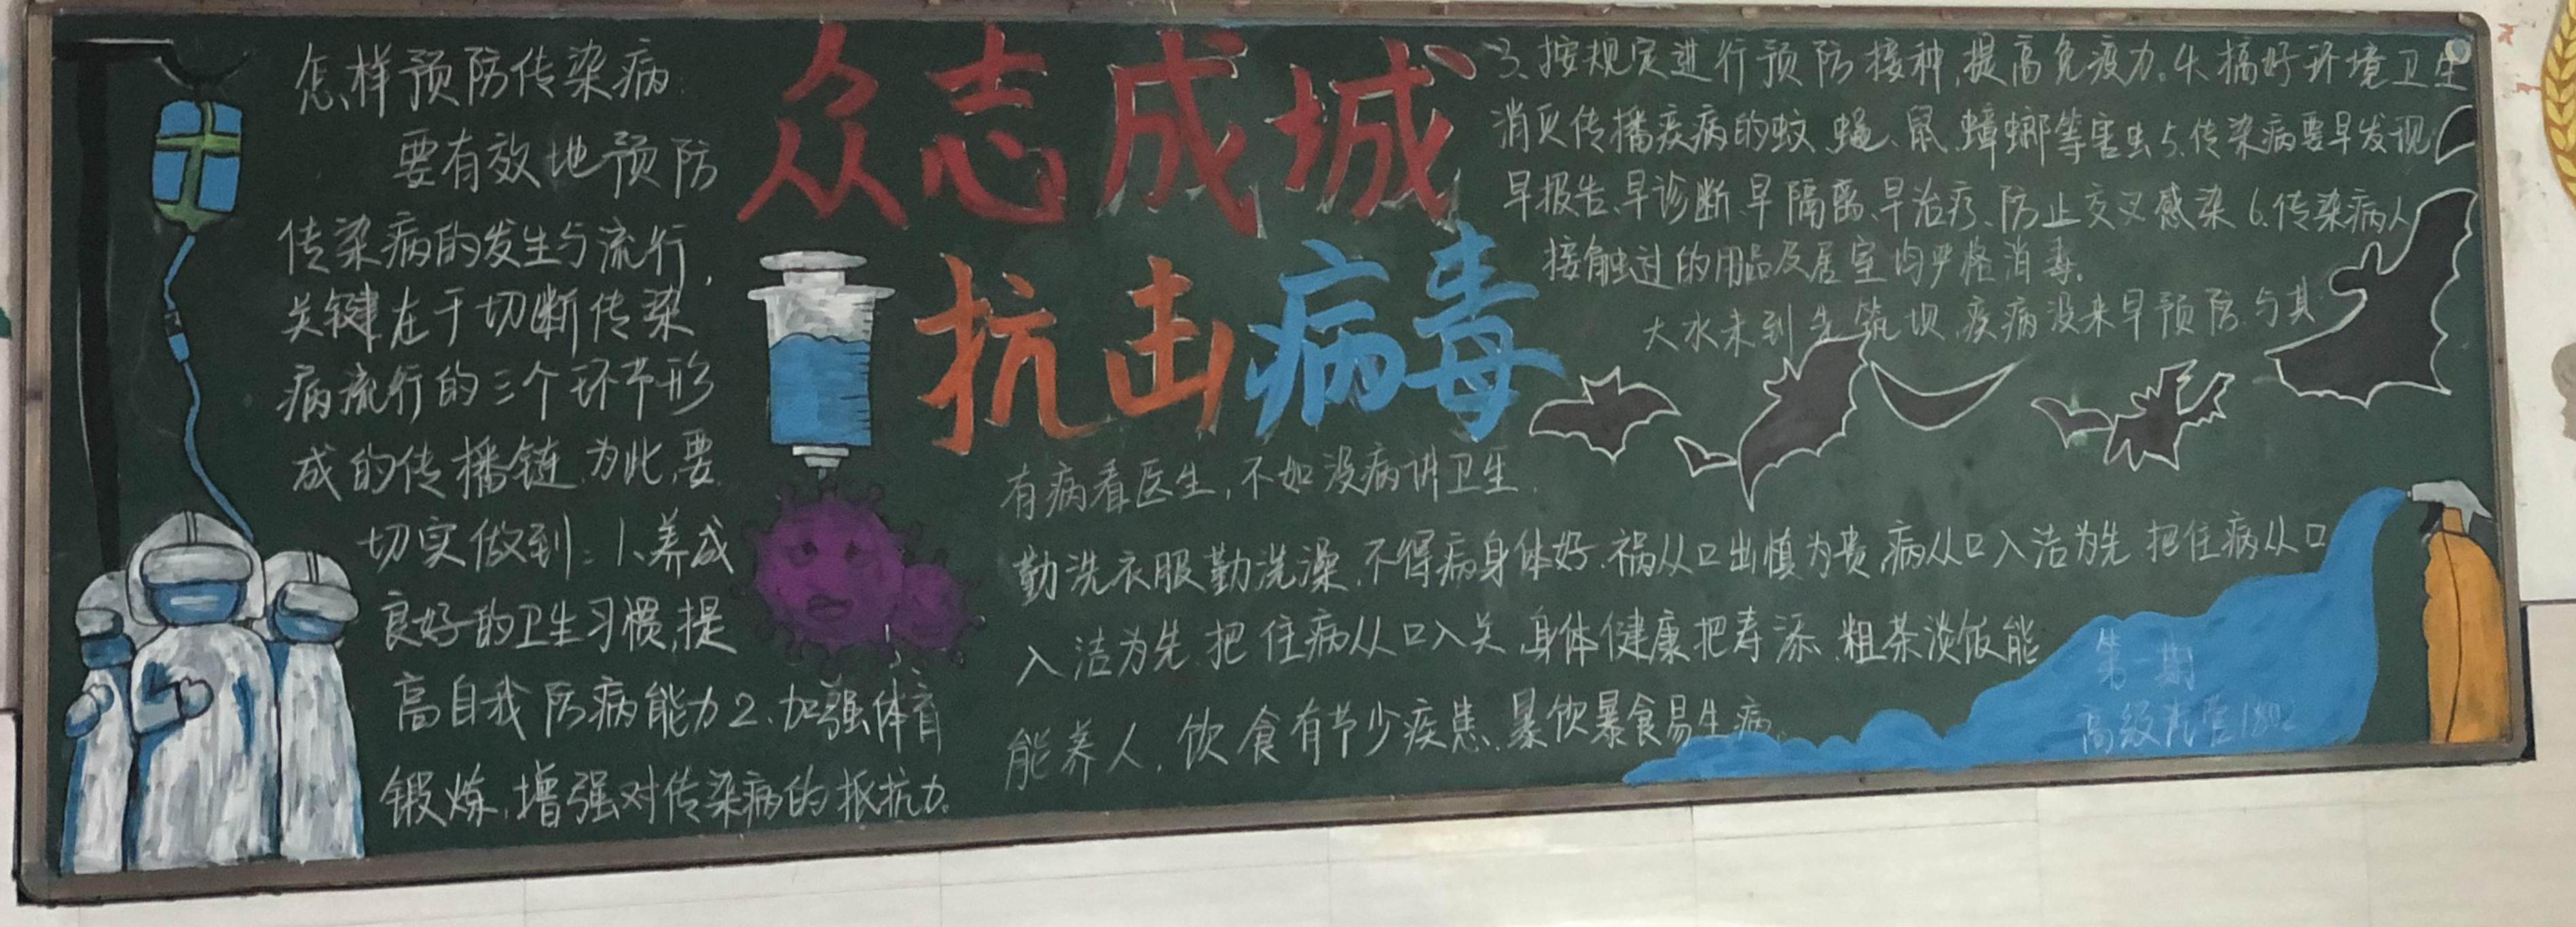 众志成城
抗击病毒
怎样预防传染病:
要有效地预防
传染病的发生与流行,
关键在于切断传染
病流行的三个环节形
成的传播链.为此,要
切实做到:1、养成
良好的卫生习惯,提
高自我防病能力2、加强体育
锻炼,增强对传染病的抵抗力。
3、按规定进行预防接种,提高免疫力。4、搞好环境卫生
消灭传播疾病的蚊、蝇、鼠、蟑螂等害虫5、传染病要早发现
早报告、早诊断、早隔离、早治疗、防止交叉感染6.传染病人
接触过的用品及居室均严格消毒。
大水未到先筑坝,疾病没来早预防.与其
有病看医生,不如没病讲卫生.
勤洗衣服勤洗澡.不得病身体好.祸从口出慎为贵,病从口入洁为先.把住病从口
入洁为先.把住病从口入关,身体健康把寿添.粗茶淡饭能
能养人,饮食有节少疾患.暴饮暴食易生病。
第一期
高级汽营1802